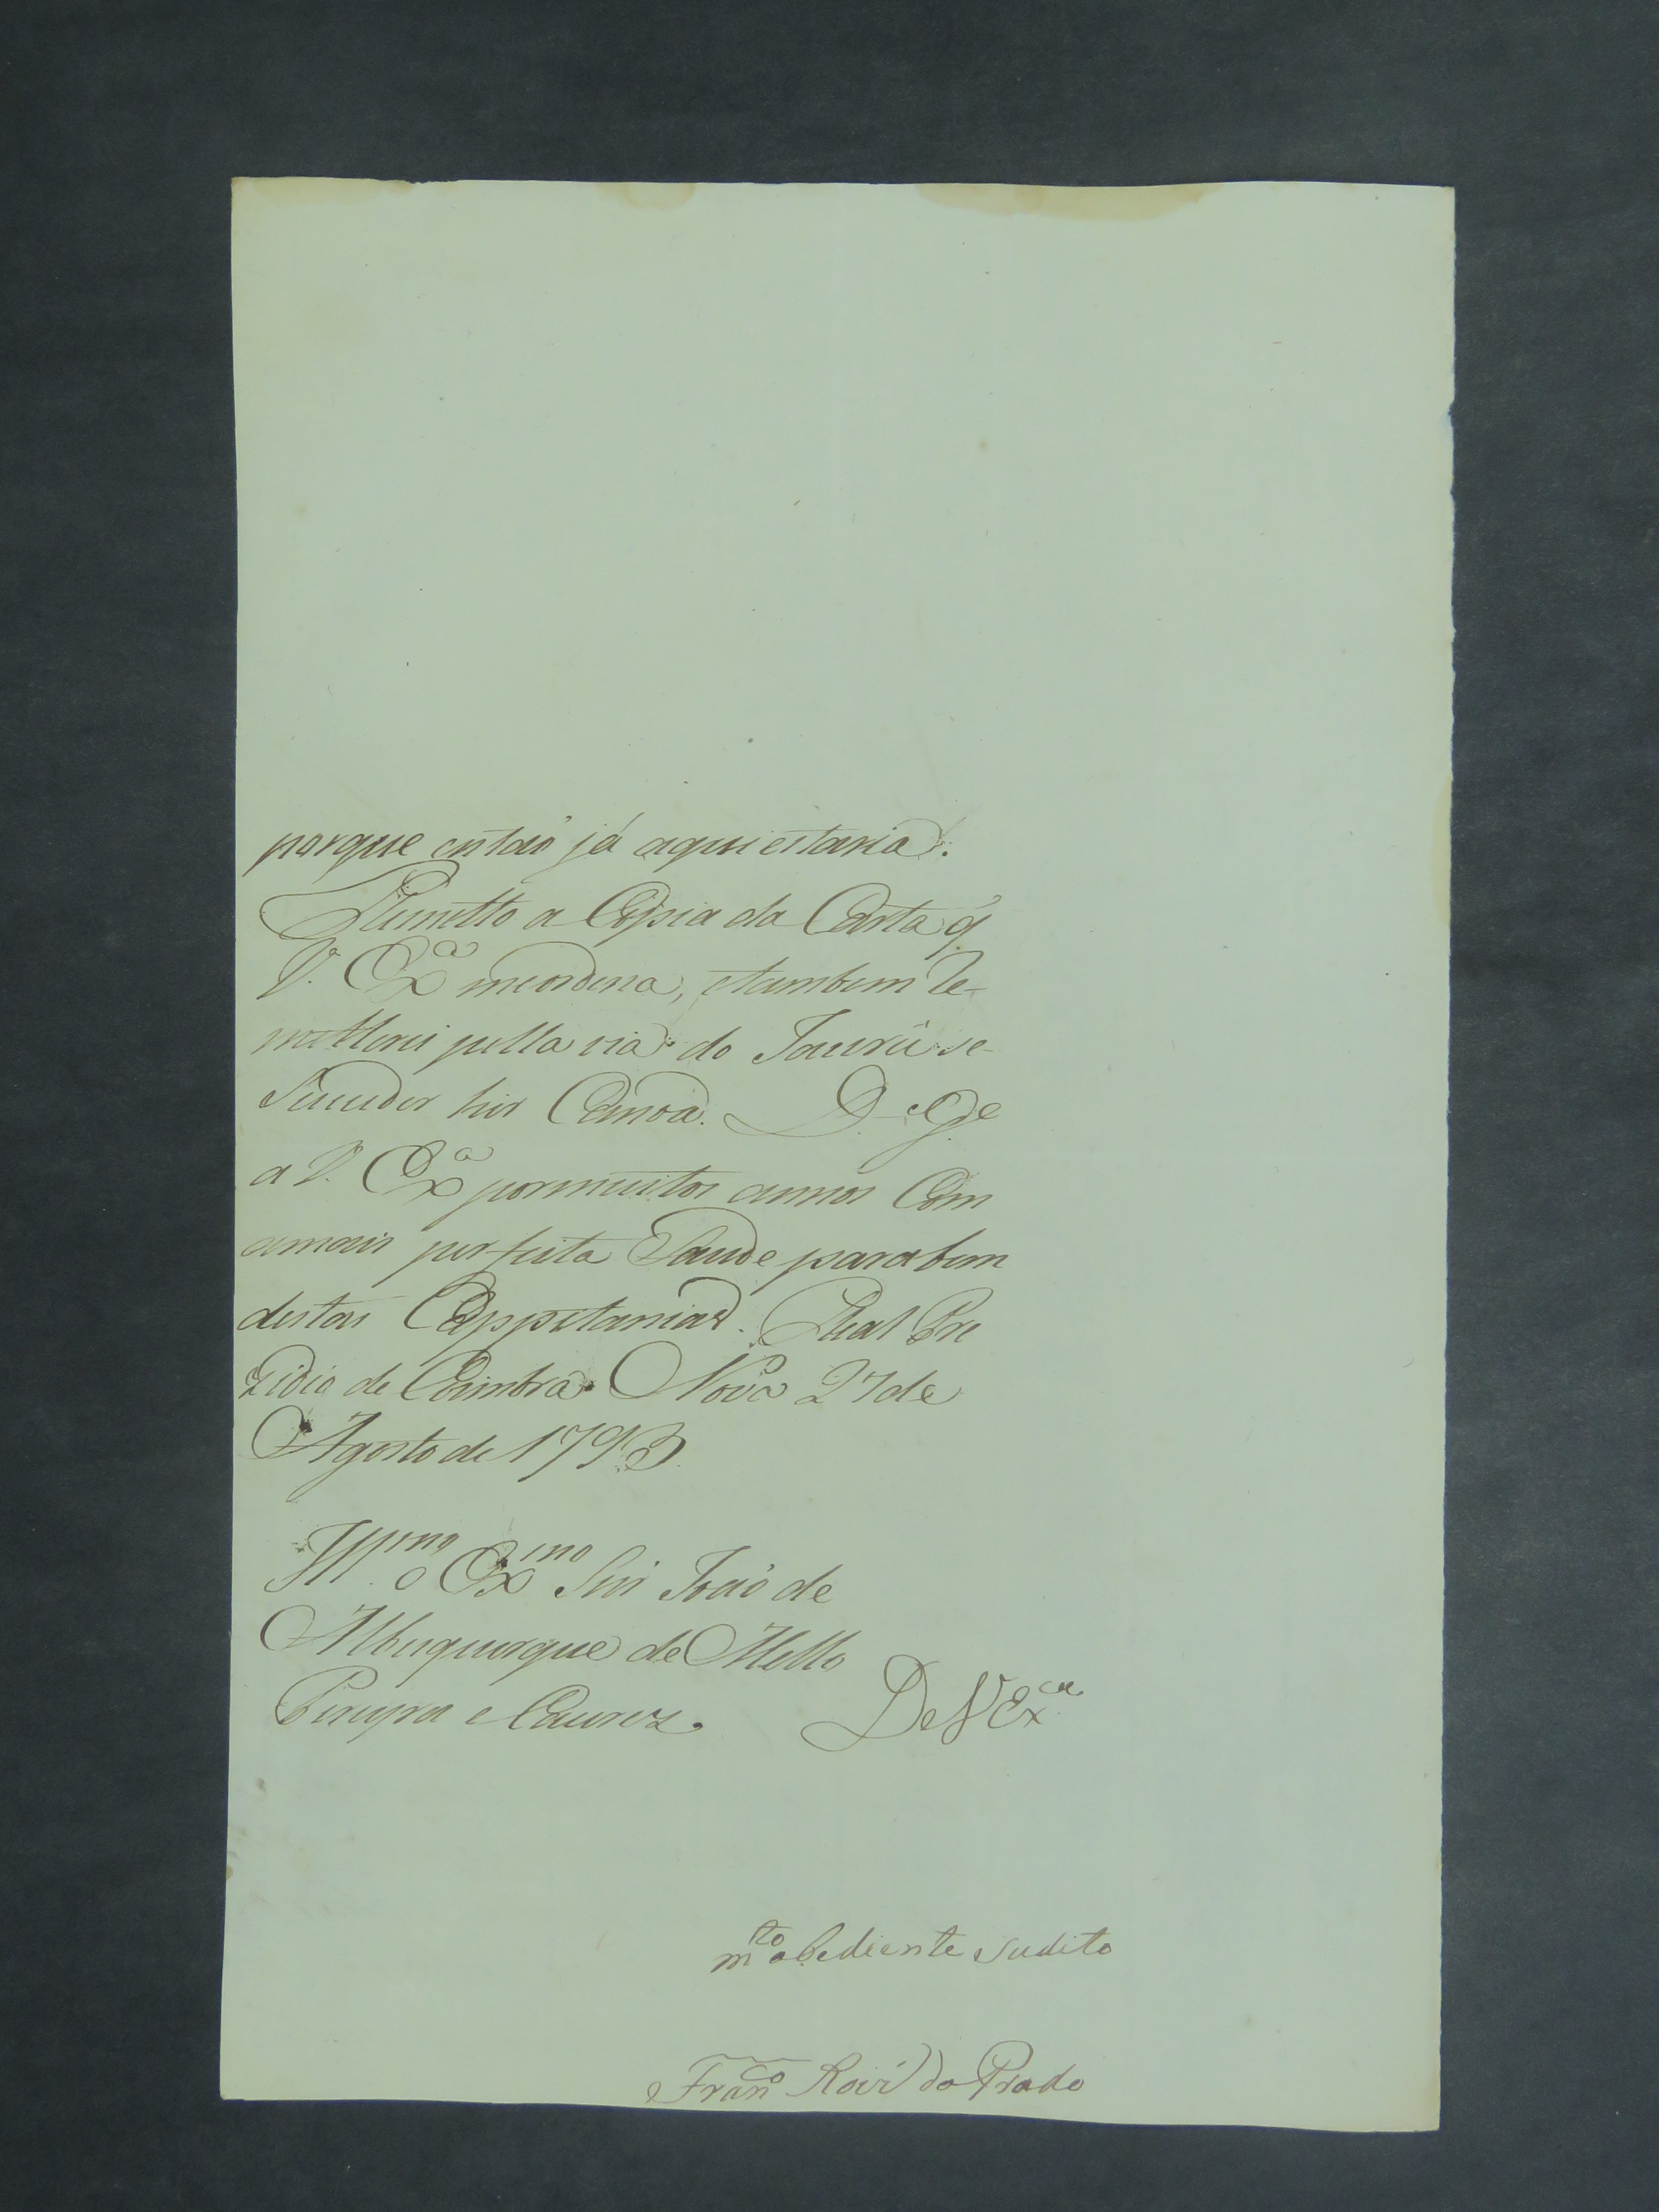 porque então já aqui estaria.
Remetto a Copia da Carta q̃
V. Exª meordena, etambem Re-
metterei pella via do Jaurú se
suceder hir Canoa. D. Gde
a V. Exª pormuitos annos Com
amais perfeita Saude parabem
destas Cappitanias. Real Pre
zidio de Coimbra Nova 27 de
Agosto de 1793
Illmo e Exmo Snr João de
Albuquerque de Mello
Pereyra e Caceres.
De V Exca
mto obediente sudito
Franco Roiz' do Prado